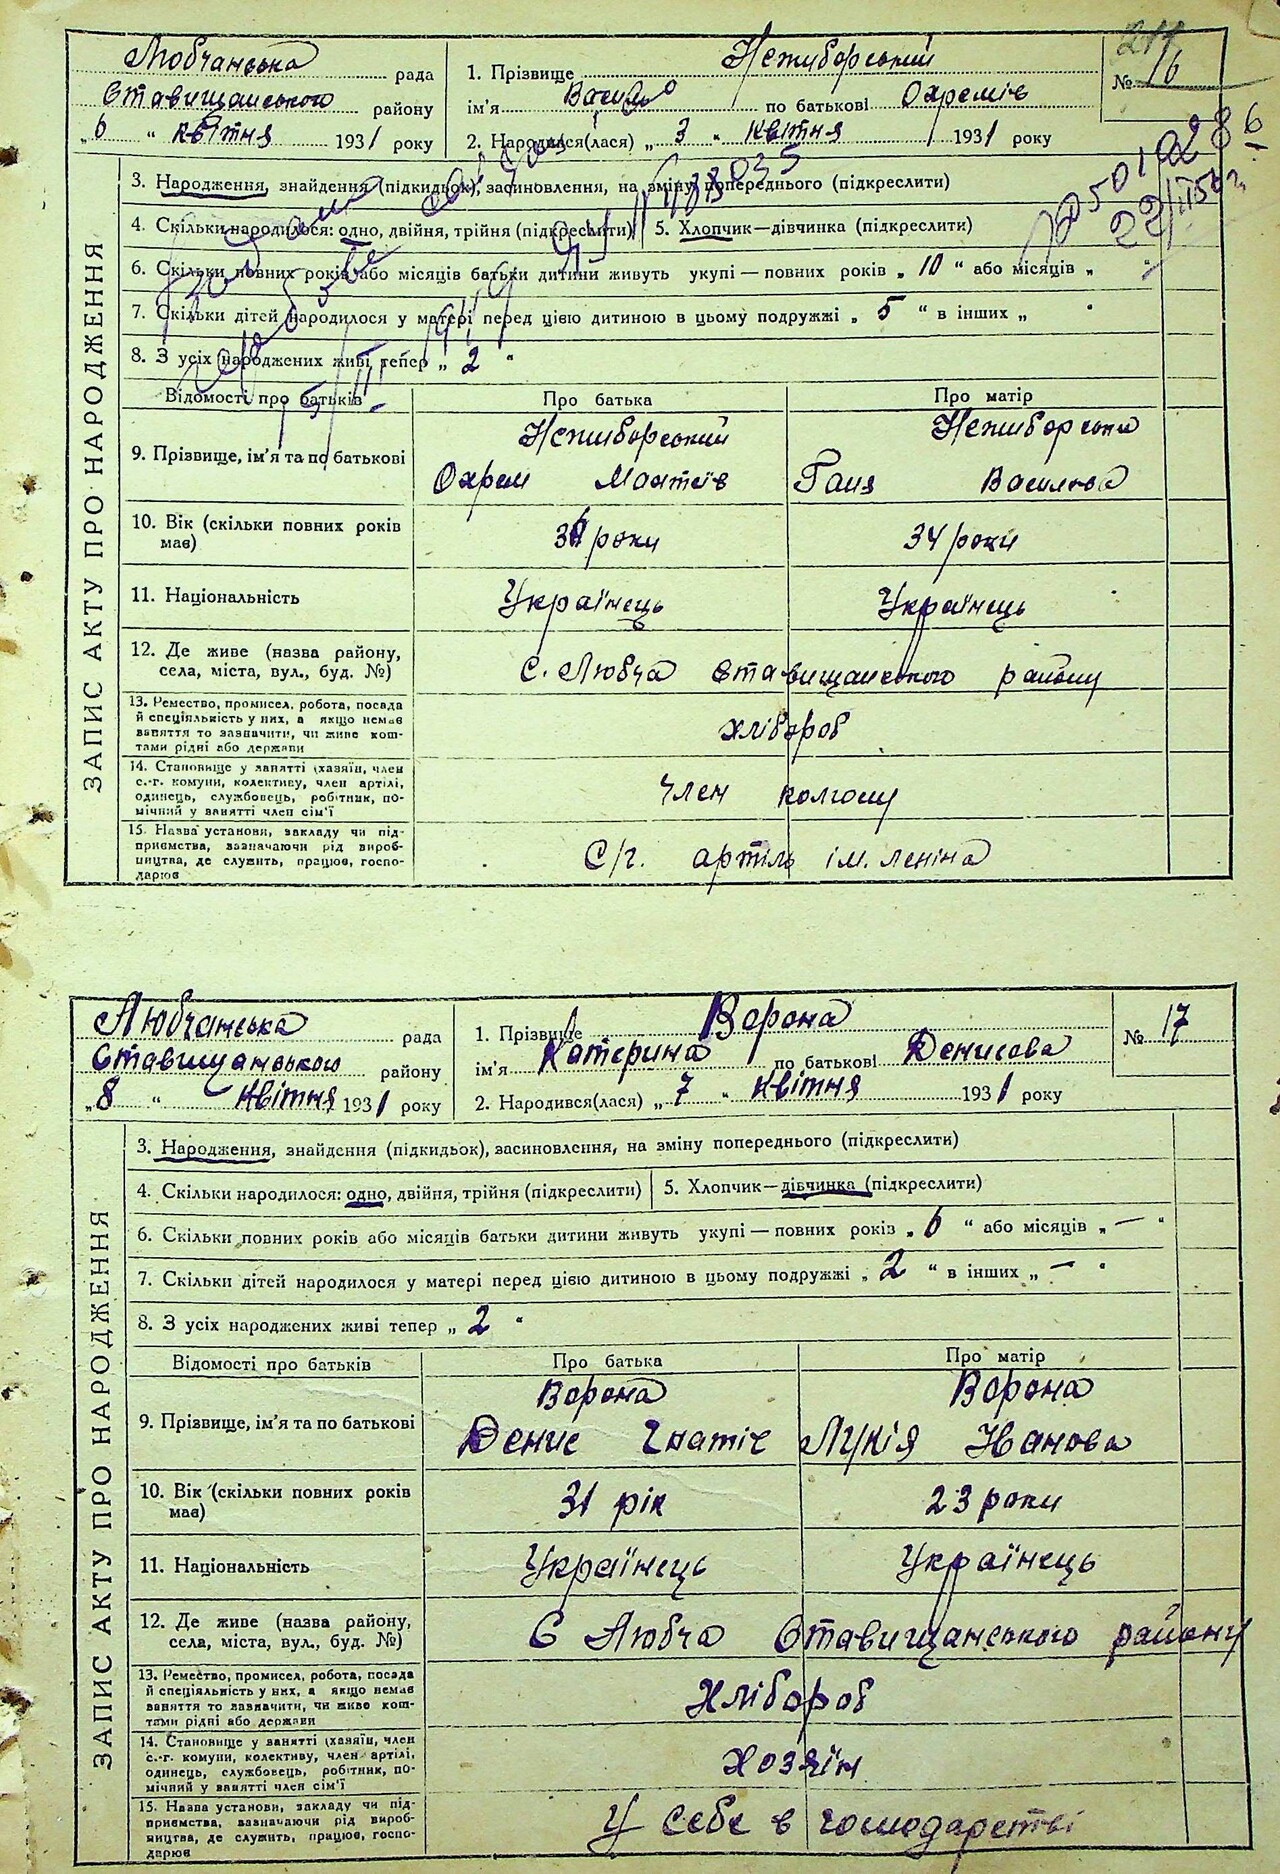 Любчанська рада
Ставищанського району
„6“ квітня 1931 року
1. Прізвище Нежиборський
ім'я Василь по батькові Охремів
2. Народився(лася) „3“ квітня 1931 року
№ 16
211
ЗАПИС АКТУ ПРО НАРОДЖЕННЯ
3. Народження, знайдення (підкидьок), засиновлення, на зміну попереднього (підкреслити)
4. Скільки народилося: одно, двійня, трійня (підкреслити) 5. Хлопчик—дівчинка (підкреслити)
6. Скільки повних років або місяців батьки дитини живуть укупі — повних років „10“ або місяців „ “
7. Скільки дітей народилося у матері перед цією дитиною в цьому подружжі „5“ в інших „ “
8. З усіх народжених живі тепер „2“
Відомості про батьків Про батька Про матір
9. Прізвище, ім'я та по батькові
Нежиборський Нежиборська
Охрем Мантеїв Ганя Василева
10. Вік (скільки повних років
має)
роки 34 роки
11. Національність Українець Українець
12. Де живе (назва району,
села, міста, вул., буд. №)
с. Любча Ставищанського району
13. Ремество, промисел, робота, посада
й спеціяльність у них, а якщо немає
заняття то зазначити, чи живе кош-
тами рідні або держави
хлібороб
14. Становище у занятті (хазяїн, член
с.-г. комуни, колективу, член артілі,
одинець, службовець, робітник, по-
мічний у занятті член сім'ї
Член колгоспу
15. Назва установи, закладу чи під-
приємства, зазначаючи рід вироб-
ництва, де служить, працює, госпо-
дарює
С/г. артіль ім. леніна
Любчанська рада
Ставищанського району
„8“ Квітня 1931 року
1. Прізвище Ворона
ім'я Катерина по батькові Денисова
2. Народився(лася) „7“ Квітня 1931 року
№ 17
ЗАПИС АКТУ ПРО НАРОДЖЕННЯ
3. Народження, знайдення (підкидьок), засиновлення, на зміну попереднього (підкреслити)
4. Скільки народилося: одно, двійня, трійня (підкреслити) 5. Хлопчик—дівчинка (підкреслити)
6. Скільки повних років або місяців батьки дитини живуть укупі — повних років „6“ або місяців „—“
7. Скільки дітей народилося у матері перед цією дитиною в цьому подружжі „2“ в інших „—“
8. З усіх народжених живі тепер „2“
Відомості про батьків Про батька Про матір
9. Прізвище, ім'я та по батькові
Ворона Ворона
Денис Гнатів Лукія Іванова
10. Вік (скільки повних років
має)
31 рік 23 роки
11. Національність Українець Українець
12. Де живе (назва району,
села, міста, вул., буд. №)
С Любча Ставищанського району
13. Ремество, промисел, робота, посада
й спеціяльність у них, а якщо немає
заняття то зазначити, чи живе кош-
тами рідні або держави
Хлібороб
14. Становище у занятті (хазяїн, член
с.-г. комуни, колективу, член артілі,
одинець, службовець, робітник, по-
мічний у занятті член сім'ї
Хозяїн
15. Назва установи, закладу чи під-
приємства, зазначаючи рід вироб-
ництва, де служить, працює, госпо-
дарює
У себе в господарстві